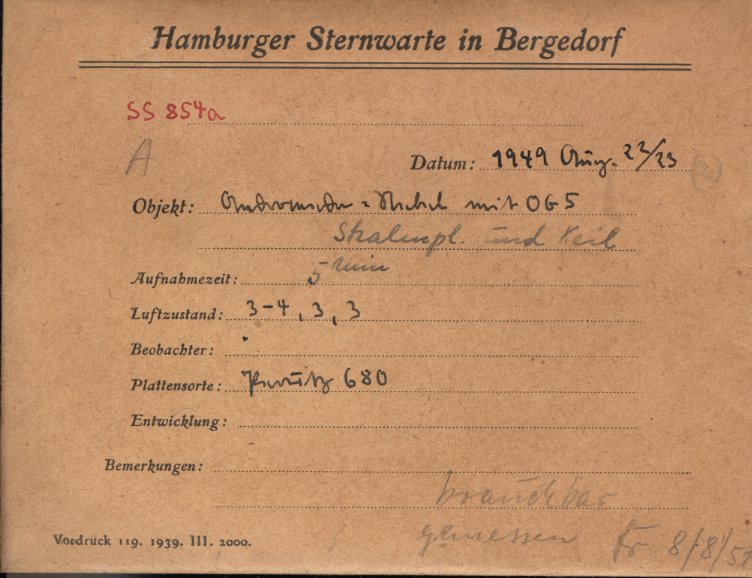 Hamburger Sternwarte in Bergedorf
SS 854a
A
Datum: 1949 Aug. 22/23
Objekt: Andromeda-Nebel mit OG5
Skalenpl. und Keil
Aufnahmezeit: 5 min
Luftzustand: 3-4, 3, 3
Beobachter:
Plattensorte: Perutz 680
Entwicklung:
Bemerkungen:
brauchbar
gemessen
Vordruck 119. 1939. III. 2000.